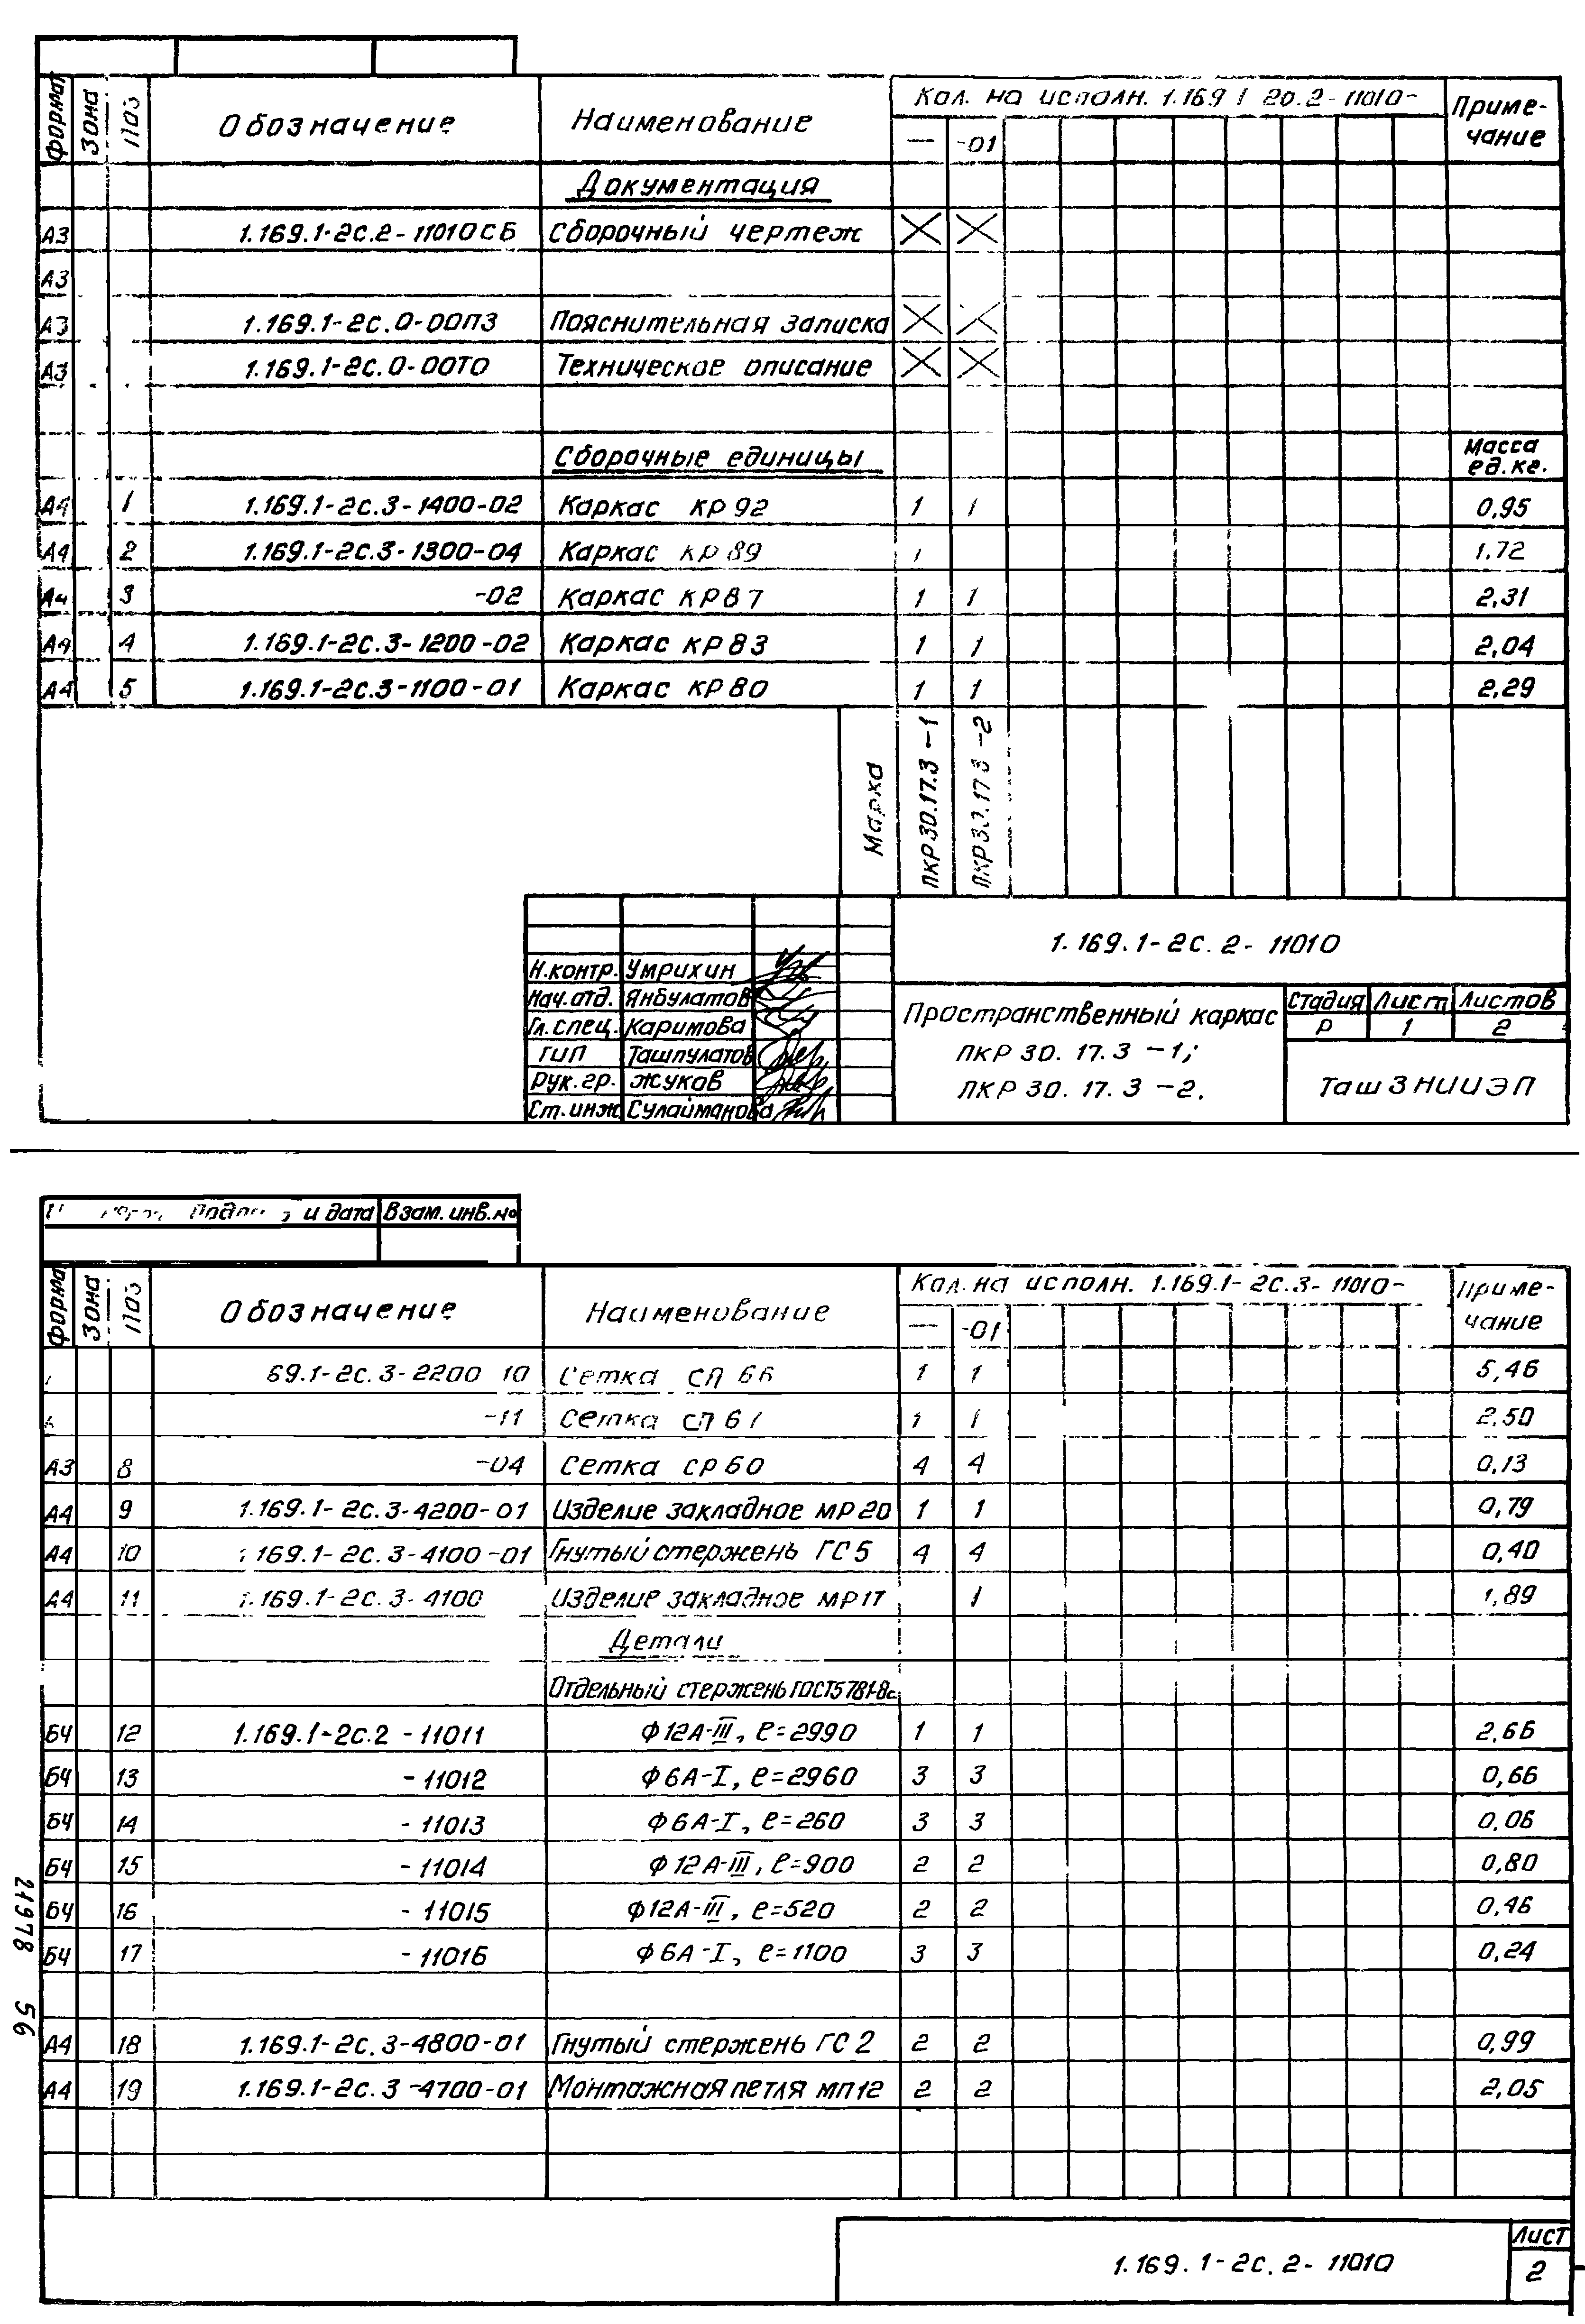 Формат Зона Поз Обозначение Наименование Кол. на исполн. 1.169.1 2с.2-11010- Приме-
— -01 чание
Документация
А3 1.169.1-2с.2-11010СБ Сборочный чертеж
А3
А3 1.169.1-2с.0-00ПЗ Пояснительная записка
А3 1.169.1-2с.0-00ТО Техническое описание
Сборочные единицы Масса ед.кг.
А4 1 1.169.1-2с.3-1400-02 Каркас кр 92 1 1 0,95
А4 2 1.169.1-2с.3-1300-04 Каркас кр 89 1 1,72
А4 3 -02 Каркас кр 87 1 1 2,31
А4 4 1.169.1-2с.3-1200-02 Каркас кр 83 1 1 2,04
А4 5 1.169.1-2с.3-1100-01 Каркас кр 80 1 1 2,29
Марка ПКР30.17.3-1 ПКР30.17.3-2
1.169.1-2с.2-11010
Н.контр. Умрихин
Нач.отд. Янбулатов
Гл.спец. Каримова
ГИП Ташпулатов
Рук.гр. Жуков
Ст.инж Сулайманова
Пространственный каркас
ПКР 30.17.3-1;
ПКР 30.17.3-2.
Стадия Лист Листов
Р 1 2
ТашЗНИИЭП
и дата Взам.инв.№
Формат Зона Поз Обозначение Наименование Кол.на исполн. 1.169.1-2с.3-11010- Приме-
— -01 чание
69.1-2с.3-2200 10 Сетка сп 66 1 1 5,46
-11 Сетка сп 61 1 1 2,50
А3 8 -04 Сетка ср 60 4 4 0,13
А4 9 1.169.1-2с.3-4200-01 Изделие закладное МР20 1 1 0,79
А4 10 169.1-2с.3-4100-01 Гнутый стержень ГС5 4 4 0,40
А4 11 1.169.1-2с.3-4100 Изделие закладное МР17 1 1,89
Детали
Отдельный стержень ГОСТ5781-8
БЧ 12 1.169.1-2с.2-11011 Ф12А-III, ℓ=2990 1 1 2,66
БЧ 13 -11012 Ф6А-I, ℓ=2960 3 3 0,66
БЧ 14 -11013 Ф6А-I, ℓ=260 3 3 0,06
БЧ 15 -11014 Ф12А-III, ℓ=900 2 2 0,80
БЧ 16 -11015 Ф12А-III, ℓ=520 2 2 0,46
БЧ 17 -11016 Ф6А-I, ℓ=1100 3 3 0,24
А4 18 1.169.1-2с.3-4800-01 Гнутый стержень ГС2 2 2 0,99
А4 19 1.169.1-2с.3-4700-01 Монтажная петля МП12 2 2 2,05
21978 56
1.169.1-2с.2-11010
Лист
2